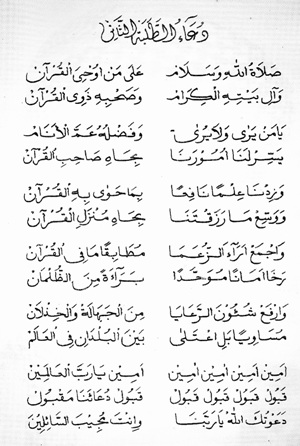 دُعَاءُ الطَّلَبَةِ الثَّانِي
صَلَاةُ اللهِ وَسَلَام عَلَى مَنْ أُوْحِيَ الْقُرْآن
وَآلِ بَيْتِهِ الْكِرَام وَصَحْبِهِ ذَوِي الْقُرْآن
يَا مَنْ يَرَى وَلَا يُرَى وَفَضْلُهُ عَمَّ الْأَنَام
يَسِّرْ لَنَا أُمُوْرَنَا بِجَاهِ صَاحِبِ الْقُرْآن
وَزِدْنَا عِلْمًا نَافِعًا بِمَا حَوَى بِهِ الْقُرْآن
وَوَسِّعْ مَا رَزَقْتَنَا بِجَاهِ مُنْزَلِ الْقُرْآن
وَاجْمَعْ آرَآءَ الزُّعَمَا مُطَابِقًا مَا فِي الْقُرْآن
رَخَا أَمَانًا مُوَحَّدًا بَرَآءَةً مِنَ الظُّلْمَان
وَارْفَعْ شُئُوْنَ الرَّعَايَا مِنَ الْجَهَالَةِ وَالْخِذْلَان
مُسَاوِيًا بَلِ اعْتَلَى بَيْنَ الْبُلْدَانِ فِي الْعَالَم
آمِين آمِين آمِين آمِين آمِين يَارَبَّ الْعَالَمِين
قَبُوْل قَبُوْل قَبُوْل قَبُوْل قَبُوْل دُعَائَنَا مَقْبُوْل
دَعَوْتُكَ اللهْ يَا رَبَّنَا وَأَنْتَ مُجِيْبُ السَّائِلِيْن